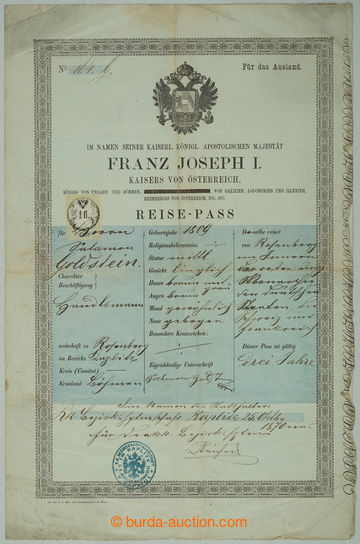 No
Für das Ausland.
IM NAMEN SEINER KAISERL. KÖNIGL. APOSTOLISCHEN MAJESTÄT
FRANZ JOSEPH I.
KAISERS VON ÖSTERREICH,
KÖNIGS VON UNGARN UND BÖHMEN, VON GALIZIEN, LODOMERIEN UND ILLYRIEN,
ERZHERZOGS VON ÖSTERREICH, ETC. ETC.
REISE-PASS
für Herrn
Salamon
Goldstein.
Charakter
Beschäftigung
Handelsmann
wohnhaft zu Rosenberg
im Bezirke Kaplitz
Kreis (Comitat)
Kronland Böhmen
Geburtsjahr 1809
Religionsbekenntniss
Statur mittl
Gesicht länglich
Haare braun
Augen braun
Mund gewöhnlich
Nase gebogen
Besondere Kennzeichen:
Eigenhändige Unterschrift
Derselbe reiset
von Rosenberg
im Innern
der österr. ung.
Monarchie
den deutschen
Staaten, die
Schweiz und
Frankreich
Dieser Pass ist gültig
drei Jahre
Im Namen des Statthalters
KK Bezirkshauptmannschaft Kaplitz
1870
© burda-auction.com